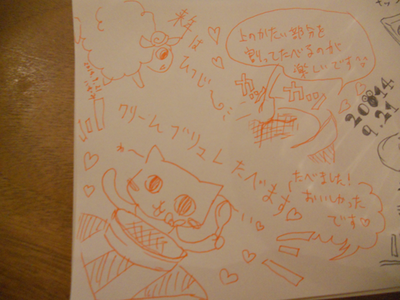 来年は
ひつじ
上のかたい部分を
割ってたべるのが
楽しいです
ガッ
ガッ
20014
9.21
クリーム ブリュレ
たべます
わ〜
たべました!
おいしかった
です